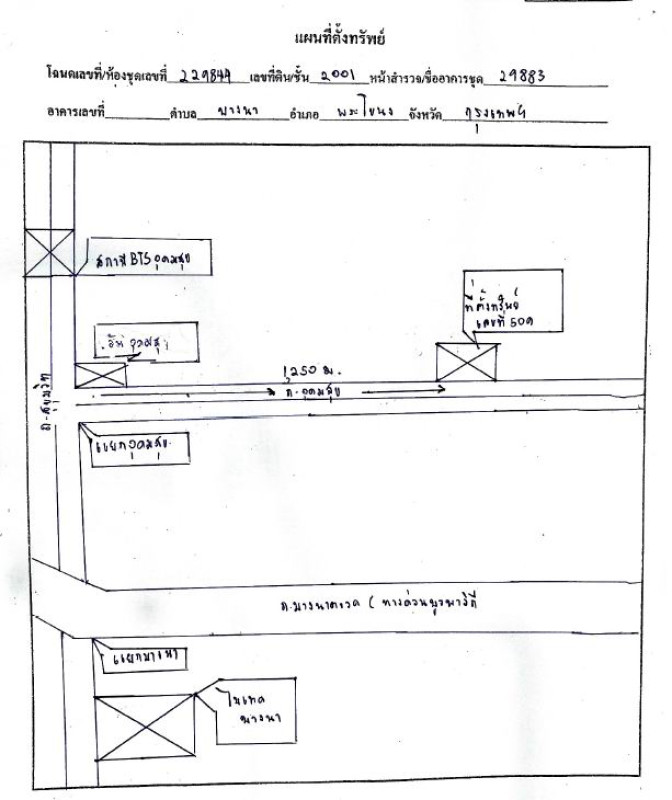 แผนที่ตั้งทรัพย์
โฉนดเลขที่/ห้องชุดเลขที่ 229844 เลขที่ดิน/ชั้น 2001 หน้าสำรวจ/ชื่ออาคารชุด 29883
อาคารเลขที่ ตำบล บางนา อำเภอ พระโขนง จังหวัด กรุงเทพฯ
สถานี BTS อุดมสุข
ที่ตั้งทรัพย์
เลขที่ 509
อุดมสุข
1,250 ม.
ถ.อุดมสุข
ถ.สุขุมวิท
แยกอุดมสุข
ถ.บางนาตราด ( ทางด่วนบูรพาวิถี
แยกบางนา
ไบเทค
บางนา